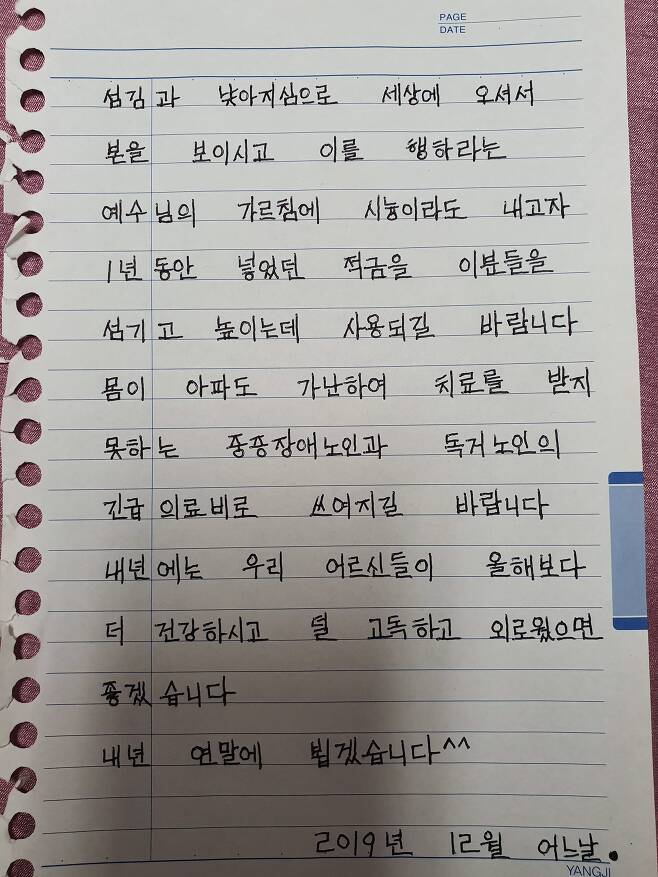 PAGE
DATE
섬김과 낮아지심으로 세상에 오셔서
본을 보이시고 이를 행하라는
예수님의 가르침에 시늉이라도 내고자
1년 동안 넣었던 적금을 이분들을
섬기고 높이는데 사용되길 바랍니다
몸이 아파도 가난하여 치료를 받지
못하는 중증장애노인과 독거노인의
긴급 의료비로 쓰여지길 바랍니다
내년에는 우리 어르신들이 올해보다
더 건강하시고 덜 고독하고 외로웠으면
좋겠습니다
내년 연말에 뵙겠습니다^^
2019년 12월 어느날.
YANGJI